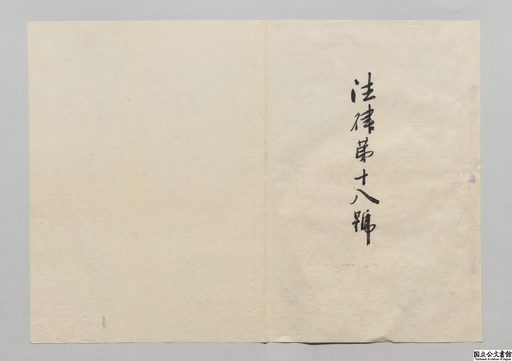 法律第十八號
国立公文書館
National Archives of Japan